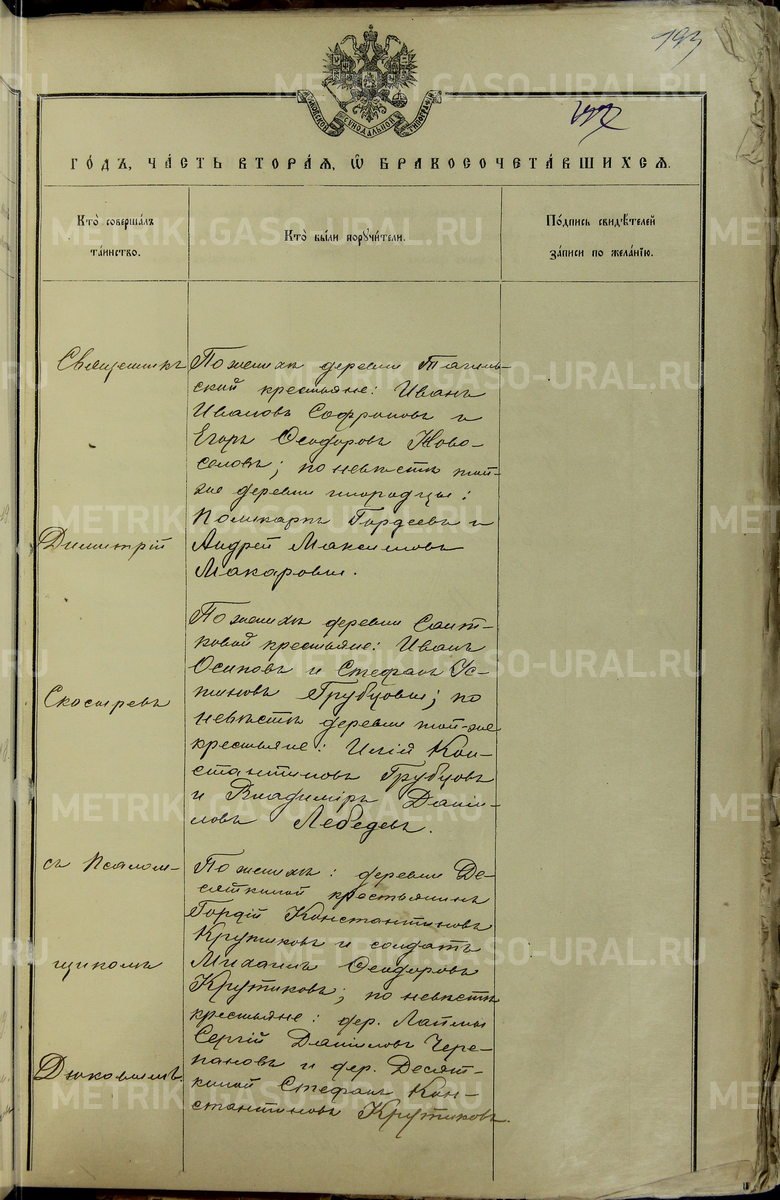 193
МОСКОВСКОЙ СѴНОДАЛЬНОЙ ТИПОГРАФІИ
ГО́ДЪ, ЧА́СТЬ ВТОРА́Я, Ѡ҆ БРАКОСОЧЕТА́ВШИХСЯ.
Кто̀ соверша́лъ
та́инство.
Кто̀ бы́ли поручи́тели.
По́дпись свидѣ́телей
за́писи по жела́нїю.
Священникъ
Димитрій
Скосыревъ
съ Псалом-
щикомъ
Дюковымъ.
По женихѣ деревни Тагиль-
ской крестьяне: Иванъ
Ивановъ Софроновъ и
Егоръ Ѳеодоровъ Ново-
селовъ; по невѣстѣ той-
же деревни инородцы:
Поликарпъ Гордеевъ и
Андрей Максимовъ
Макаровы.
По женихѣ деревни Саит-
ковой крестьяне: Иванъ
Осиповъ и Стефанъ Ус-
тиновъ Трубцовы; по
невѣстѣ деревни той-же
крестьяне: Илій Кон-
стантиновъ Трубцовъ
и Владиміръ Даніи-
ловъ Лебедевъ.
По женихѣ: деревни Де-
сяткиной крестьянинъ
Гордій Константиновъ
Крутиковъ и солдатъ
Михаилъ Ѳеодоровъ
Крутиковъ; по невѣстѣ
крестьяне: дер. Лаптевы
Сергій Даніиловъ Чере-
пановъ и дер. Десят-
киной Стефанъ Кон-
стантиновъ Крутиковъ.
METRIKI.GASO-URAL.RU